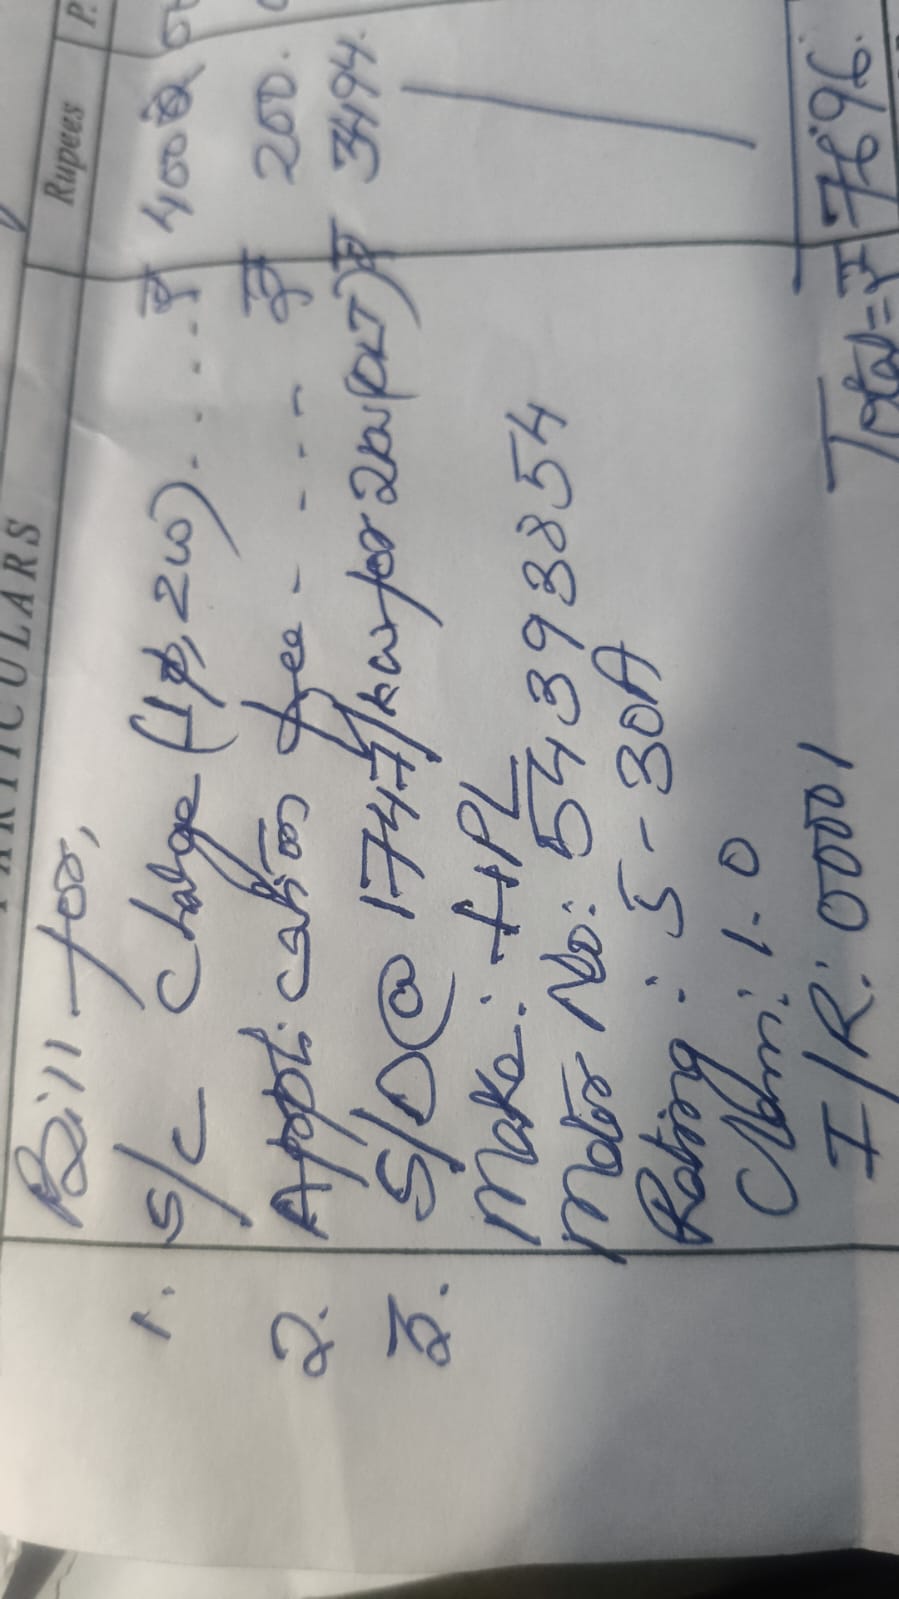 PARTICULARS Rupees P.
Bill for,
1. S/C Charge (1φ, 2W) . . . . ₹ 4002
2. Appl. cation fee - - - - ₹ 200.
3. S/D @ 1747/kw for 2kw (DLT) ₹ 3494.
Make: HPL
Meter No: 54393854
Rating: 5-30A
I/R: 00001
Total = ₹ 7696.